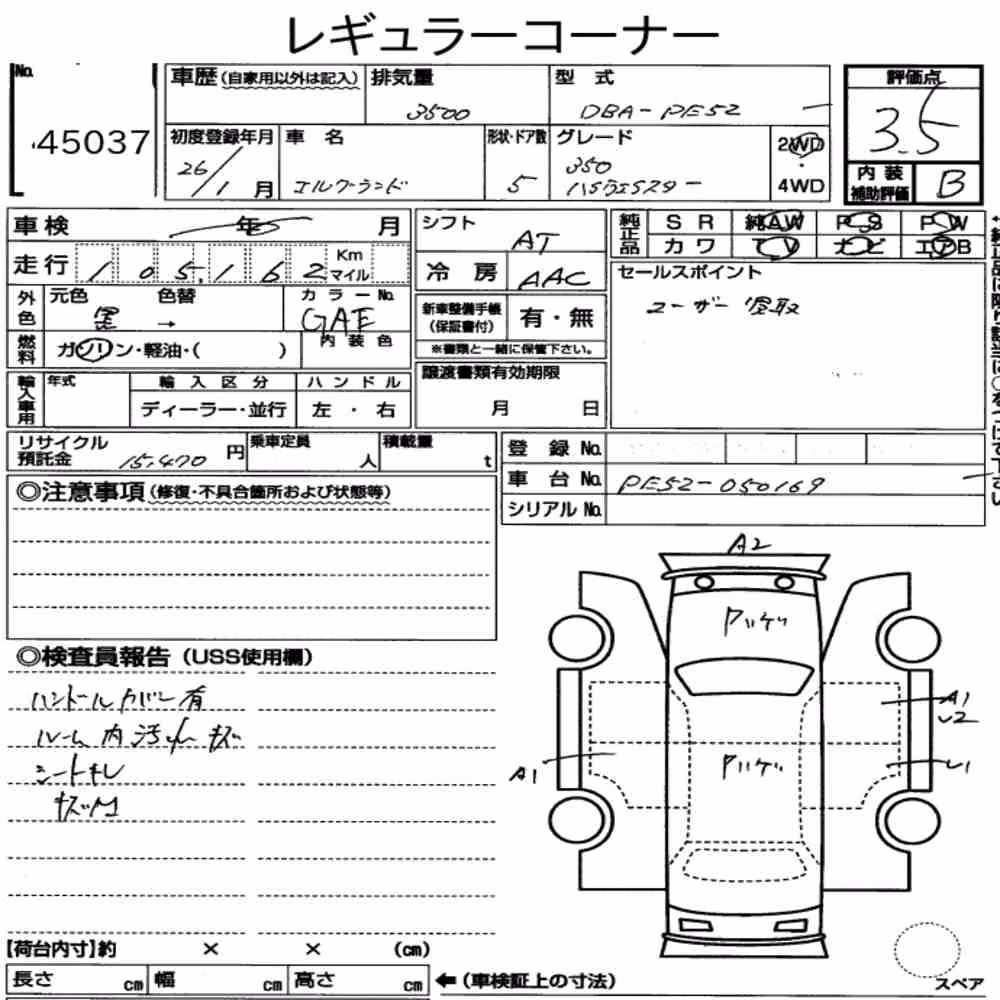 レギュラーコーナー
No.
45037
車歴(自家用以外は記入)
排気量
3500
型式
DBA-PE52
評価点
3.5
初度登録年月
26/1月
車名
エルグランド
形状・ドア数
5
グレード
350
ハイウェイスター
2WD
・
4WD
内装
補助評価
B
車検 年 月
シフト
AT
純正品
SR 純AW PS PW
カワ TV ナビ エアB
走行 105,162 Km マイル
冷房 AAC
セールスポイント
ユーザー買取
外色
元色 色替
黒 →
カラーNo.
GAE
新車整備手帳
(保証書付)
有・無
※書類と一緒に保管下さい。
燃料
ガソリン・軽油・( )
内装色
輸入車用
年式
輸入区分
ハンドル
ディーラー・並行
左・右
譲渡書類有効期限
月 日
リサイクル
預託金 15,470 円
乗車定員
人
積載量
t
登録No.
車台No. PE52-050169
シリアルNo.
◎注意事項(修復・不具合箇所および状態等)
◎検査員報告(USS使用欄)
ハンドルカバー有
ルーム内汚れ キズ
シートキレ
A2
A1
U2
U1
A1
【荷台内寸】約 × × (cm)
長さ cm 幅 cm 高さ cm
←(車検証上の寸法)
スペア